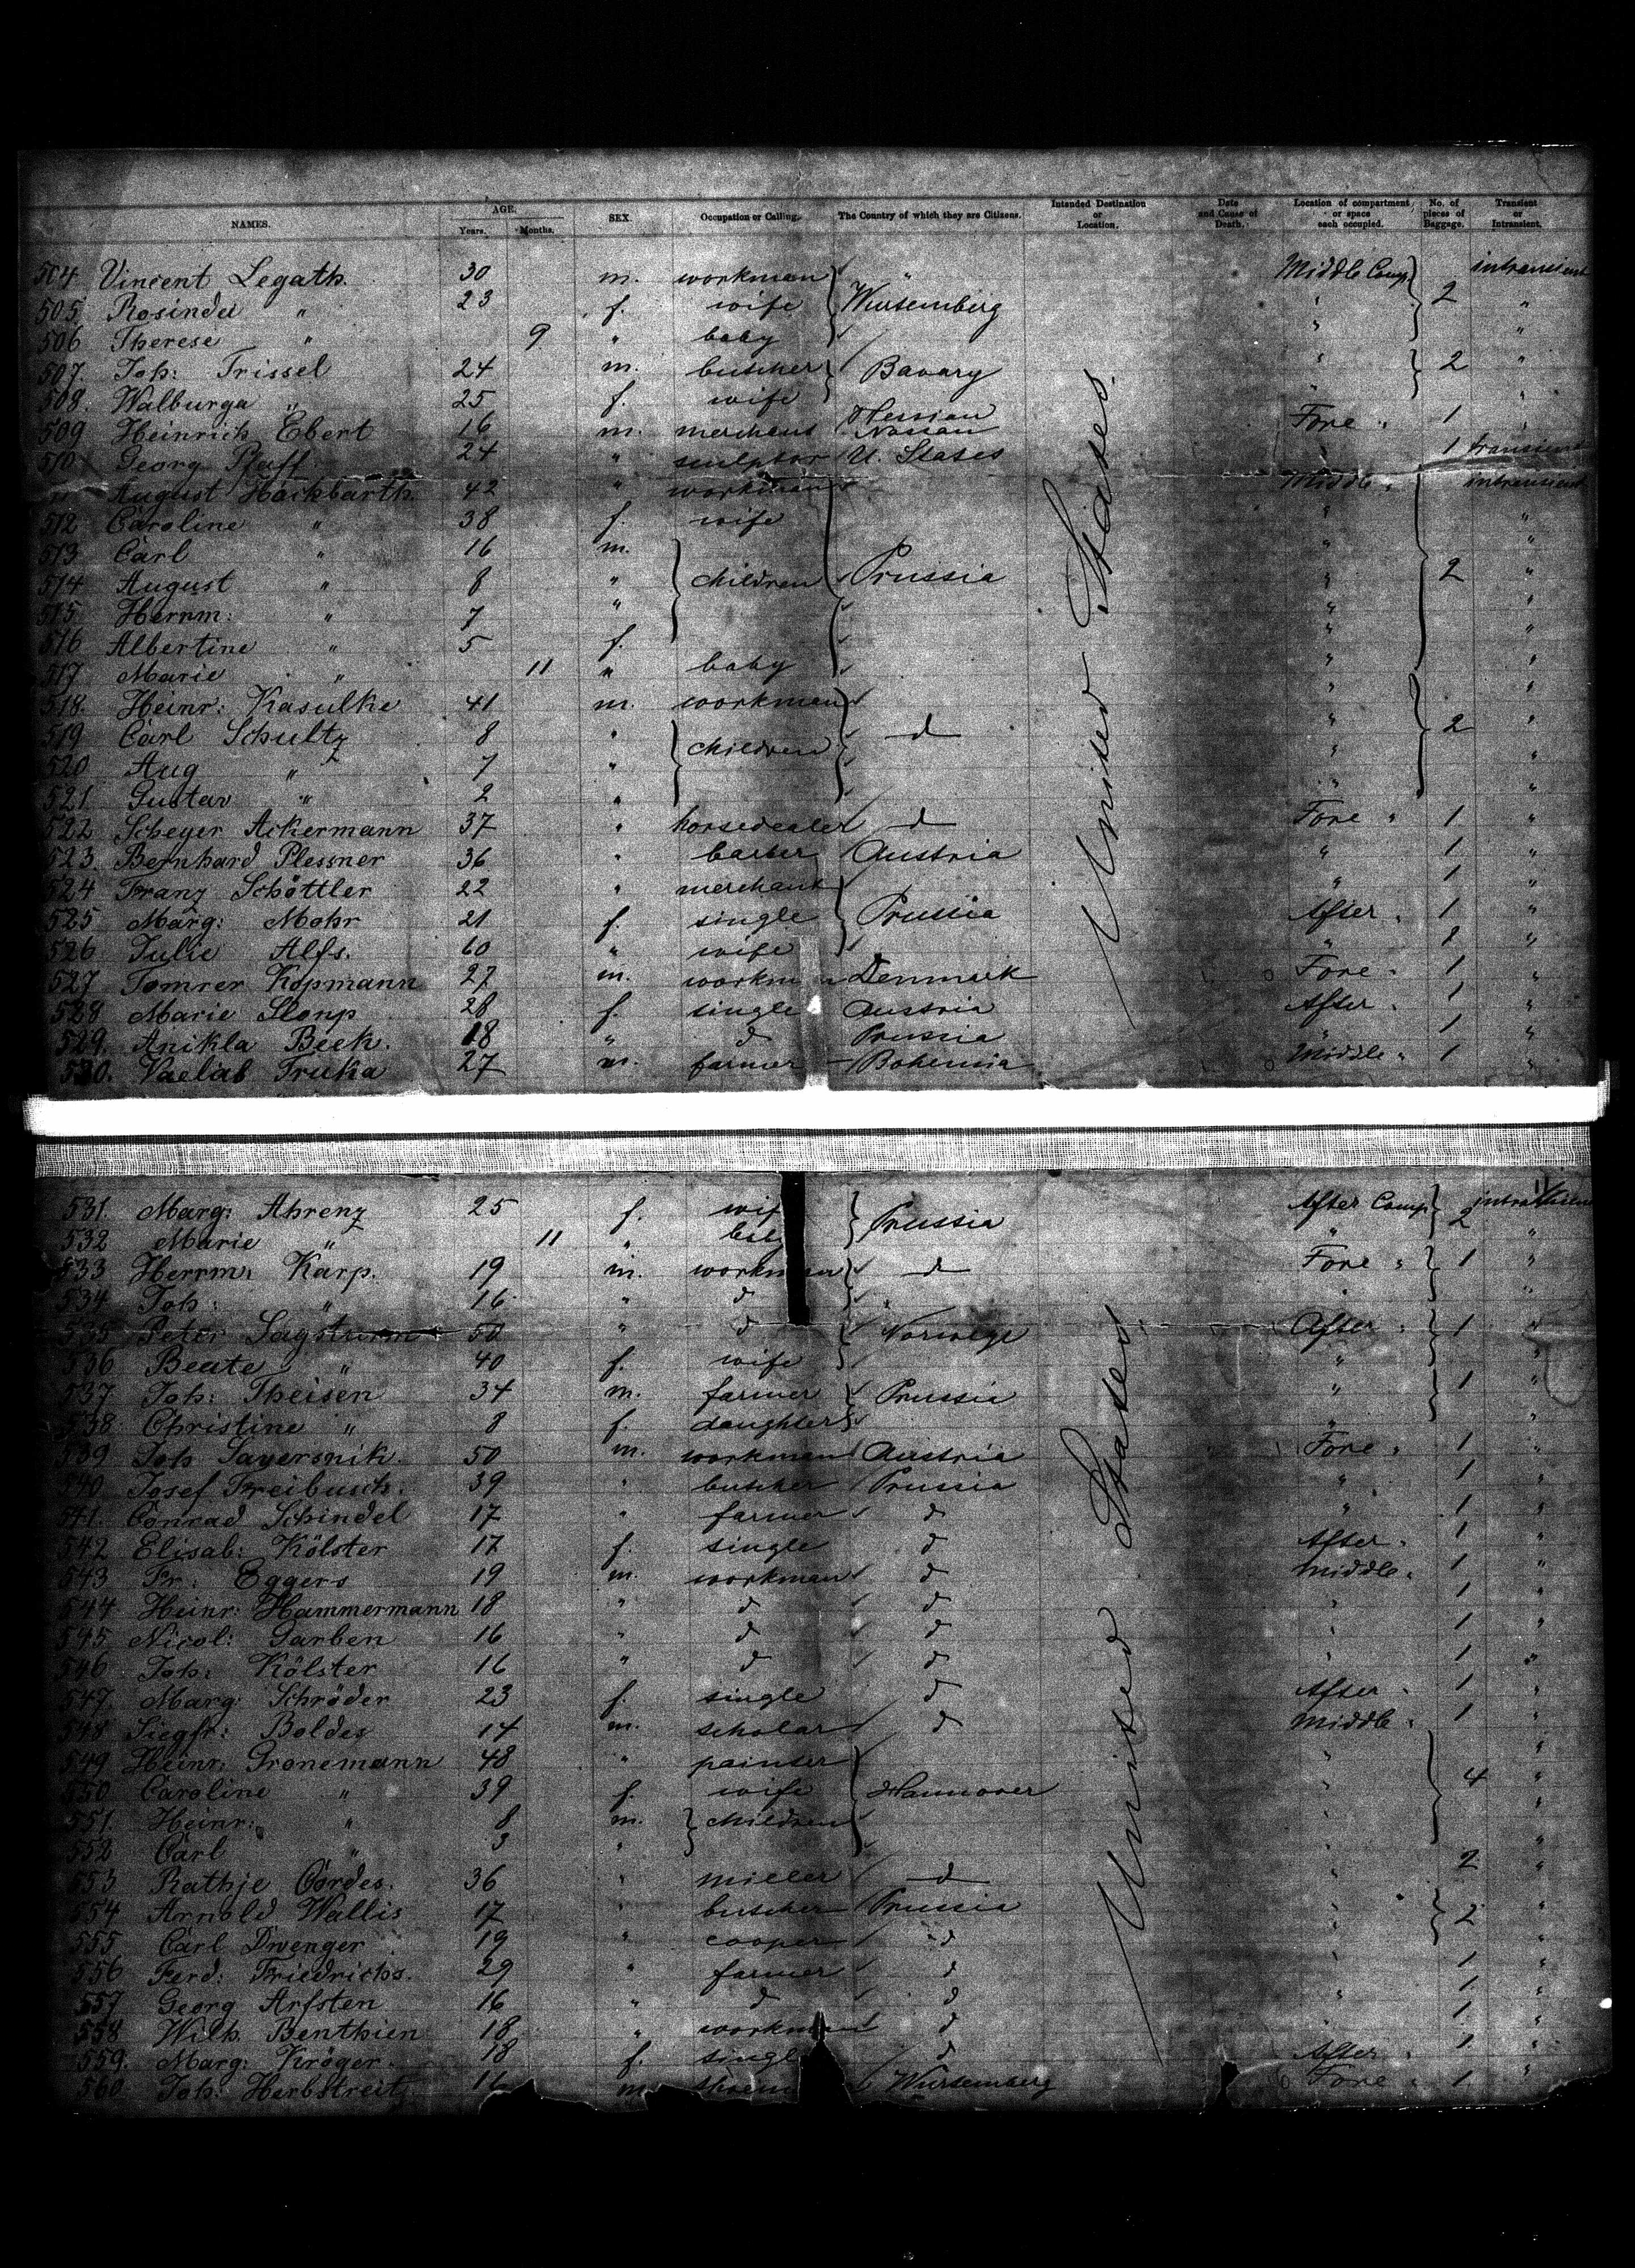 NAMES. AGE. Years. Months. SEX. Occupation or Calling. The Country of which they are Citizens. Intended Destination or Location. Date and Cause of Death. Location of compartment or space each occupied. No. of pieces of Baggage. Transient or Intransient.
504 Vincent Legath. 30 m. workman " Middle Comp 2 intransient
505 Rosindel " 23 f. wife Wurtemberg " "
506 Therese " 9 " baby " "
507. Joh: Trissel 24 m. butcher Bavary " 2 "
508. Walburga " 25 f. wife " "
509 Heinrich Ebert 16 m. merchant Hessian Nassau Fore " 1 "
510 Georg Pfaff 24 " sculptor U. States 1 transient
August Hackbarth 42 " workman Middle " intransient
512 Caroline " 38 f. wife " "
513 Carl " 16 m. " "
514 August " 8 " children Prussia " 2 "
515 Herrm: " 7 " " "
516 Albertine " 5 f. " "
517 Marie " 11 " baby " "
518. Heinr: Kasulke 41 m. workman " "
519 Carl Schultz 8 " children d " 2 "
520 Aug " 7 " " "
521 Gustav " 2 " " "
522 Scheyer Ackermann 37 " horsedealer d Fore " 1 "
523. Bernhard Plessner 36 " barber Austria " 1 "
524 Franz Schöttler 22 " merchant " 1 "
525 Marg: Mohr 21 f. single Prussia After " 1 "
526 Julie Alfs. 60 " wife " "
527 Tomrer Kopmann 27 m. workman Denmark Fore " 1 "
528 Marie Slonp 28 f. single Austria After " 1 "
529. Anikla Beek. 18 " d Prussia " 1 "
530. Vaelab Truka 27 m. farmer Bohemia Middle " 1 "
United States
531. Marg: Ahrenz 25 f. wif Prussia After Comp 2
532 Marie " 11 " " "
533 Herrm: Karp. 19 m. workman d Fore " 1 "
534 Joh: " 16 " d " "
535 Peter 50 " d Norwege After " 1 "
536 Beate " 40 f. wife " "
537 Joh: Theisen 34 m. farmer Prussia " 1 "
538 Christine " 8 f. daughter " "
539 Joh Sayersnik 50 m. workman Austria Fore " 1 "
540 Josef Freibusch. 39 " butcher Prussia " 1 "
541. Conrad Schindel 17 " farmer d " 1 "
542 Elisab: Kölster 17 f. single d After " 1 "
543 Pr: Eggers 19 m. workman d Middle " 1 "
544 Heinr: Hammermann 18 " d d " 1 "
545 Nicol: Garben 16 " d d " 1 "
546 Joh: Kölster 16 " d d " 1 "
547. Marg: Schröder 23 f. single d After " 1 "
548 Siegfr: Boldes 14 m. scholar d Middle " 1 "
549 Heinr: Gronemann 48 " painter " "
550 Caroline " 39 f. wife Hannover " 4 "
551. Heinr: " 8 m. children " "
552 Carl " 3 " " "
553 Rathje Cordes. 36 " miller d " 2 "
554 Arnold Wallis 17 " butcher Prussia " 2 "
555 Carl Dwenger 19 " cooper d " "
556 Ferd: Friedrichs. 29 " farmer d " 1 "
557 Georg Arfsten 16 " d d " 1 "
558 Wilh. Benthien 18 " workman d " 1 "
559. Marg: Kröger. 18 f. singl d After " 1 "
560 Joh: Herbstreit 16 m. Wurtemberg Fore " 1 "
United States